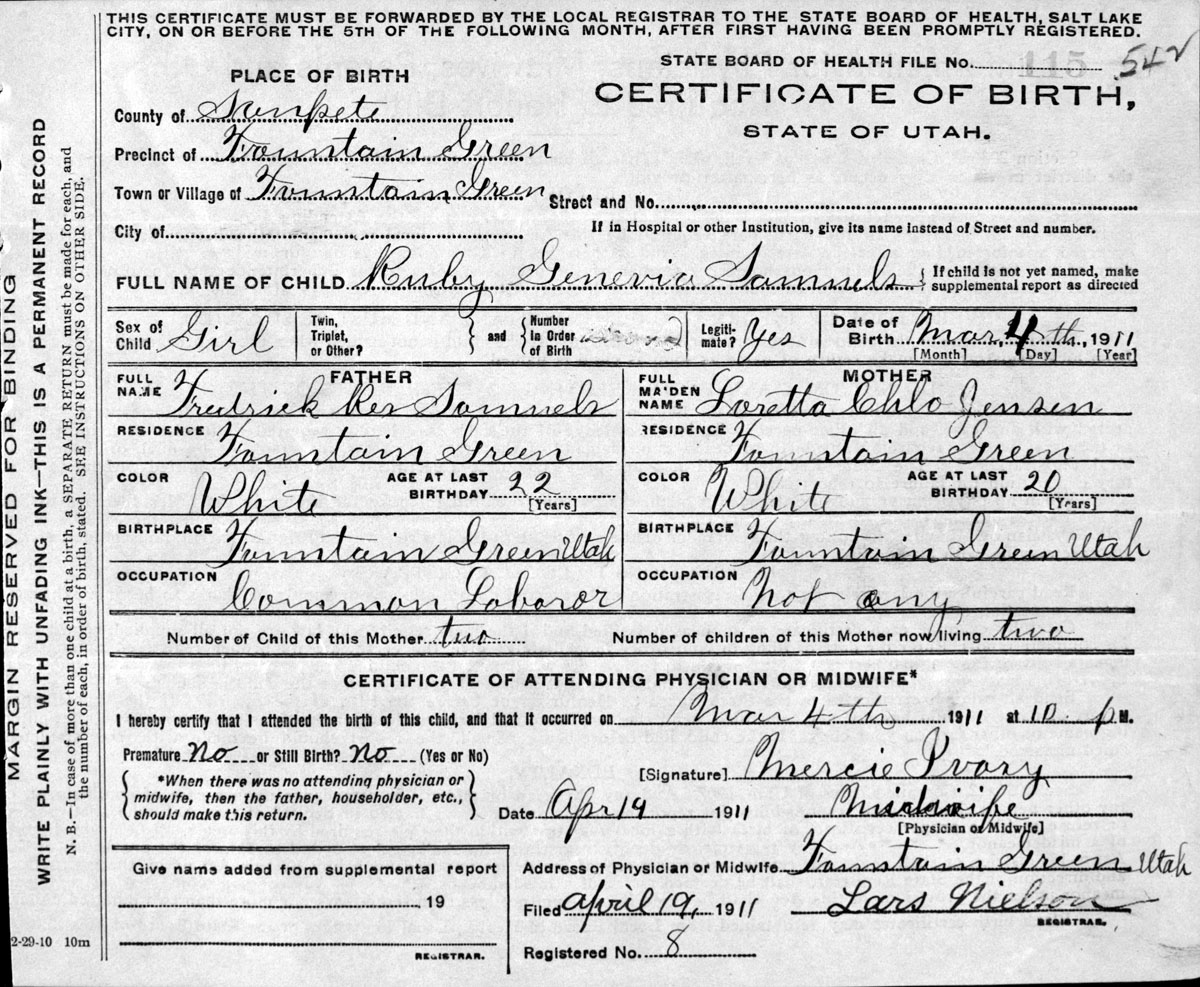 THIS CERTIFICATE MUST BE FORWARDED BY THE LOCAL REGISTRAR TO THE STATE BOARD OF HEALTH, SALT LAKE
CITY, ON OR BEFORE THE 5TH OF THE FOLLOWING MONTH, AFTER FIRST HAVING BEEN PROMPTLY REGISTERED.
STATE BOARD OF HEALTH FILE No. 115 542
PLACE OF BIRTH
CERTIFICATE OF BIRTH,
STATE OF UTAH.
County of Sanpete
Precinct of Fountain Green
Town or Village of Fountain Green Street and No.
City of If in Hospital or other Institution, give its name instead of Street and number.
FULL NAME OF CHILD Ruby Genevia Samuels { If child is not yet named, make
supplemental report as directed
Sex of Child Girl
Twin, Triplet, or Other? } and { Number in Order of Birth
Legitimate? Yes
Date of Birth Mar, 4th, 1911
[Month] [Day] [Year]
FATHER
FULL NAME Fredrick Rex Samuels
RESIDENCE Fountain Green
COLOR White AGE AT LAST BIRTHDAY 22 [Years]
BIRTHPLACE Fountain Green Utah
OCCUPATION Common Laboror
MOTHER
FULL MAIDEN NAME Loretta Chlo Jensen
RESIDENCE Fountain Green
COLOR White AGE AT LAST BIRTHDAY 20 [Years]
BIRTHPLACE Fountain Green Utah
OCCUPATION Not any
Number of Child of this Mother two Number of children of this Mother now living two
CERTIFICATE OF ATTENDING PHYSICIAN OR MIDWIFE*
I hereby certify that I attended the birth of this child, and that it occurred on Mar 4th 1911 at 10 P M.
Premature No or Still Birth? No (Yes or No)
*When there was no attending physician or
midwife, then the father, householder, etc.,
should make this return.
[Signature] Mercie Ivory
Date Apr 14 1911 Midwife
[Physician or Midwife]
Give name added from supplemental report
19
REGISTRAR.
Address of Physician or Midwife Fountain Green Utah
Filed April 19, 1911 Lars Nielson
REGISTRAR.
Registered No. 8
2-29-10 10m
MARGIN RESERVED FOR BINDING
WRITE PLAINLY WITH UNFADING INK—THIS IS A PERMANENT RECORD
N. B.—In case of more than one child at a birth, a SEPARATE RETURN must be made for each, and
the number of each, in order of birth, stated. SEE INSTRUCTIONS ON OTHER SIDE.